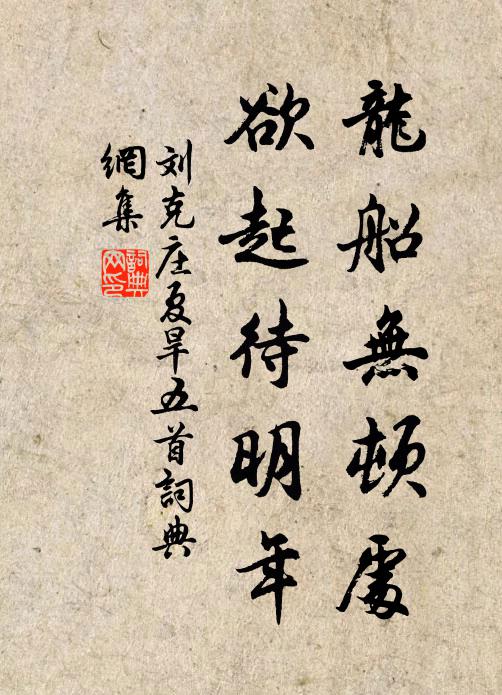 龍船無頓處
欲起待明年
刘克庄夏旱五首詞典
網集
詞典
网印